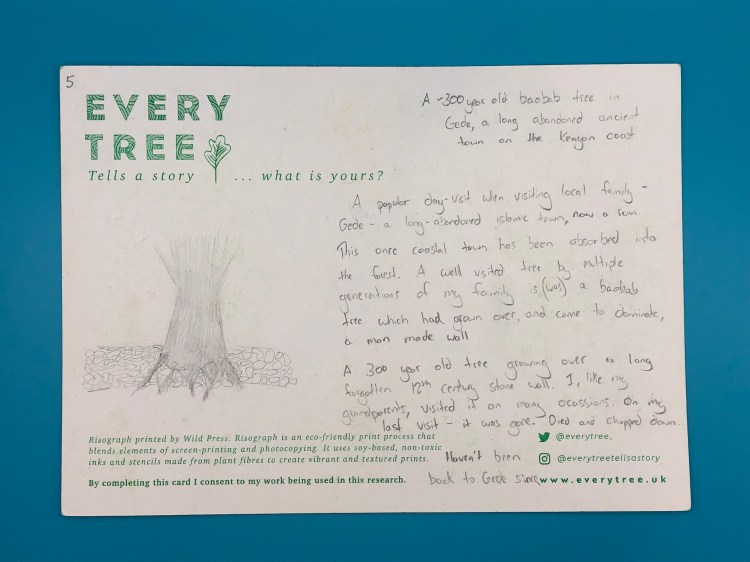 5
EVERY
TREE
Tells a story ... what is yours?
A ~300 year old baobab tree in
Gede, a long abandoned ancient
town on the Kenyan coast
A popular day-visit when visiting local family -
Gede - a long-abandoned islamic town, now a ruin
This once coastal town has been absorbed into
the forest. A well visited tree by multiple
generations of my family is (was) a baobab
tree which had grown over, and come to dominate,
a man made wall
A 300 year old tree growing over a long
forgotten 12th century stone wall. I, like my
grandparents, visited it on many ocassions. On my
last visit - it was gone. Died and chopped down.
Haven't been
back to Gede since
Risograph printed by Wild Press. Risograph is an eco-friendly print process that
blends elements of screen-printing and photocopying. It uses soy-based, non-toxic
inks and stencils made from plant fibres to create vibrant and textured prints.
By completing this card I consent to my work being used in this research.
@everytree_
@everytreetellsastory
www.everytree.uk